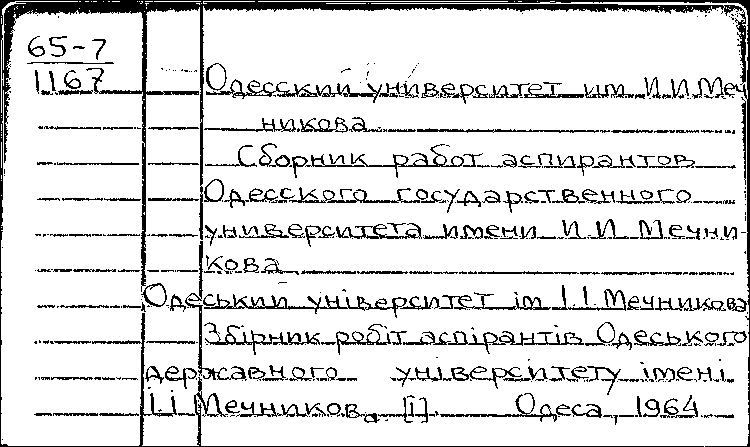 65-7
1167
Одесский университет им И.И Меч
никова.
Сборник работ аспирантов
Одесского государственного
университета имени И.И Мечни-
кова.
Одеський університет ім І.І. Мечникова
Збірник робіт аспірантів Одеського
державного університету імені
І.І Мечникова. [і]. Одеса, 1964